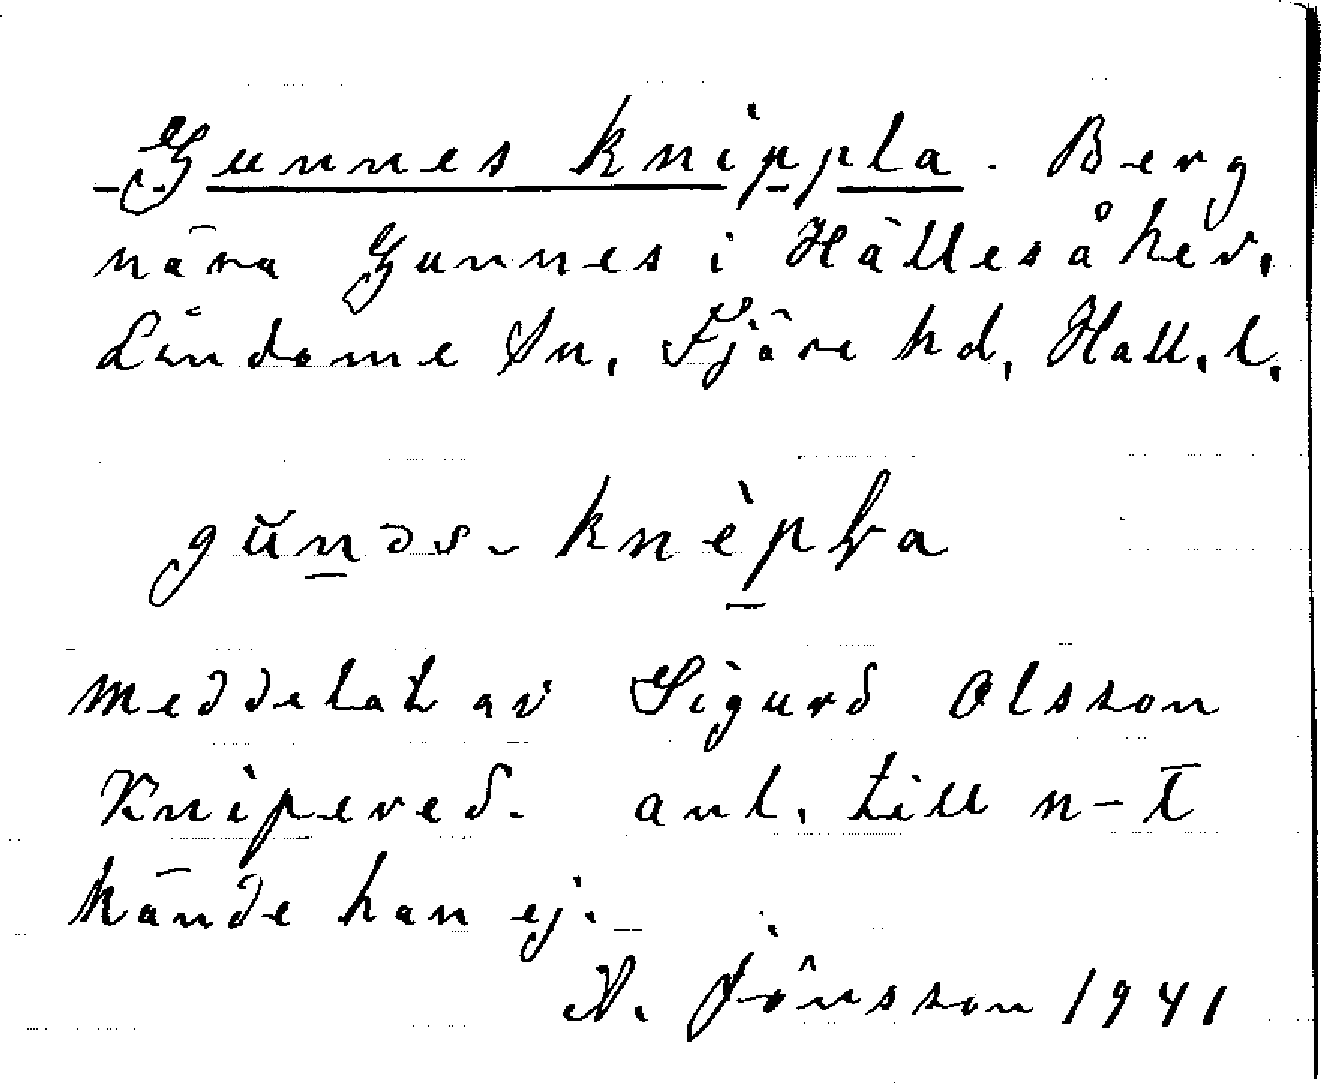 Gunnes knippla. Berg
nära Gunnes i Hällesåker.
Lindome sn, Fjäre hd, Hall. l.
gŭn̲əs-knèp̲ɫa
meddelat av Sigurd Olsson
Knipered. anl. till n-t
kände han ej.
A. Jönsson 1941